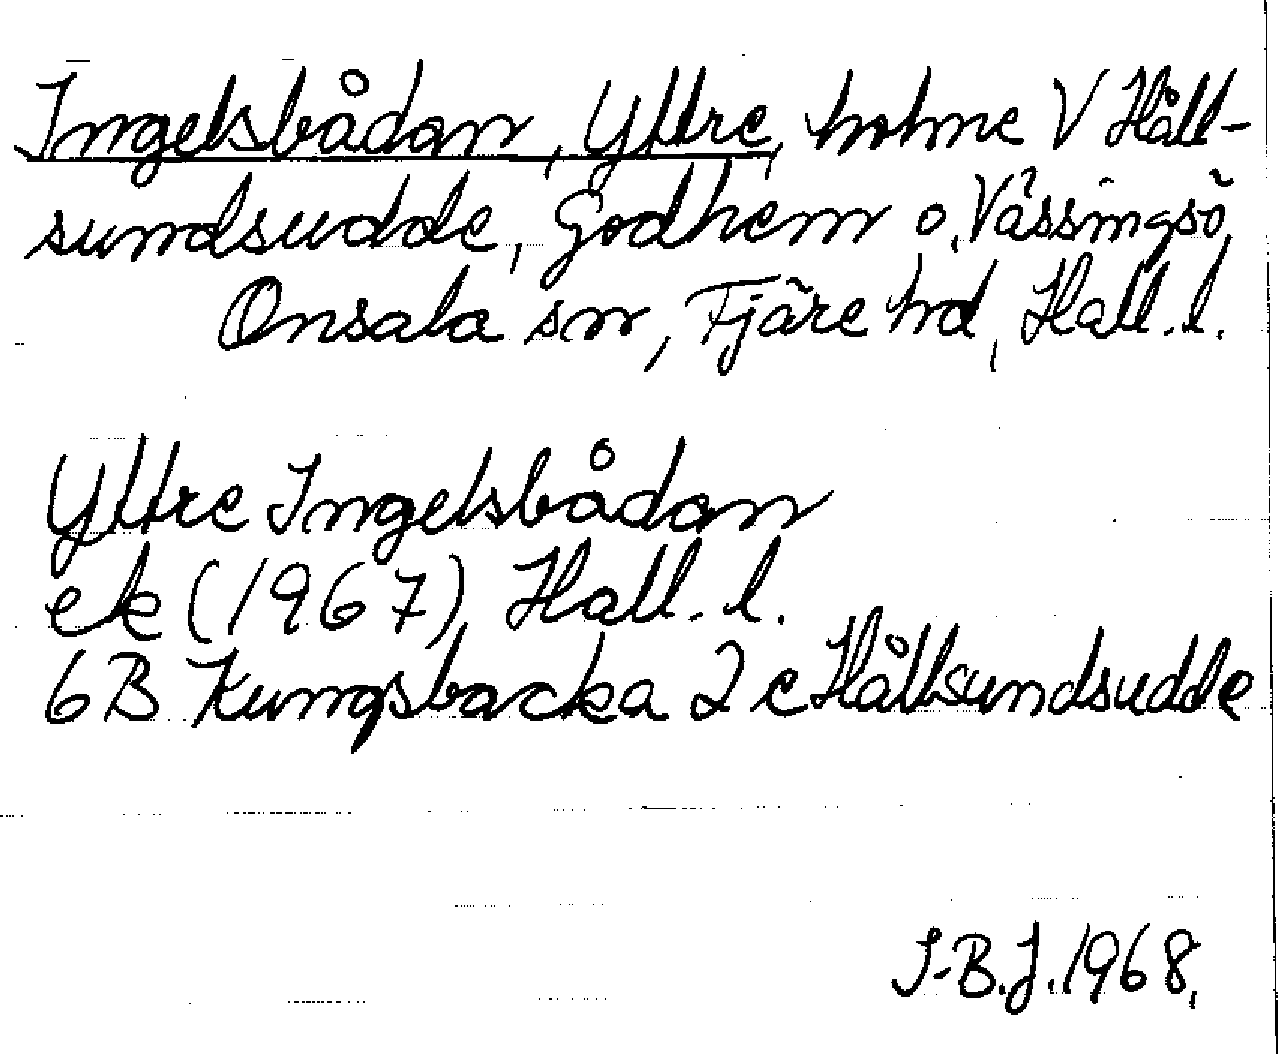 Ingelsbådan, Yttre, holme V Håll-
sundsudde, Godhem o. Vässingsö,
Onsala sn, Fjäre hd, Hall. l.
Yttre Ingelsbådan
ek (1967), Hall. l.
6B Kungsbacka 2c Hållsundsudde
I-B.J. 1968.